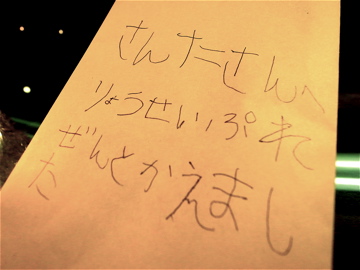 さんたさんへ
りょうせいぷれ
ぜんとかえまし
た